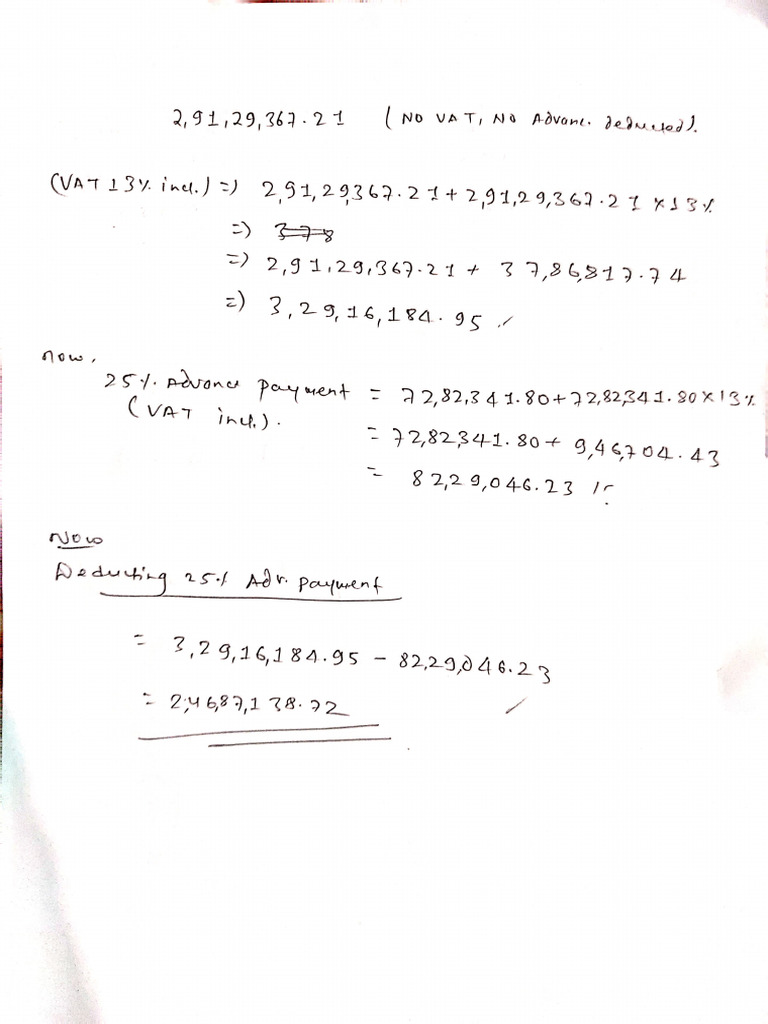 2,91,29,367.21 (NO VAT, NO Advanc. deducted).
(VAT 13% incl.) => 2,91,29,367.21 + 2,91,29,367.21 x 13%
=> 378
=> 2,91,29,367.21 + 37,86,817.74
=> 3,29,16,184.95
Now,
25% Advance payment = 72,82,341.80 + 72,82,341.80 x 13%
(VAT incl.).
= 72,82,341.80 + 9,46,704.43
= 82,29,046.23
Now
Deducting 25% Adv. payment
= 3,29,16,184.95 - 82,29,046.23
= 2,46,87,138.72